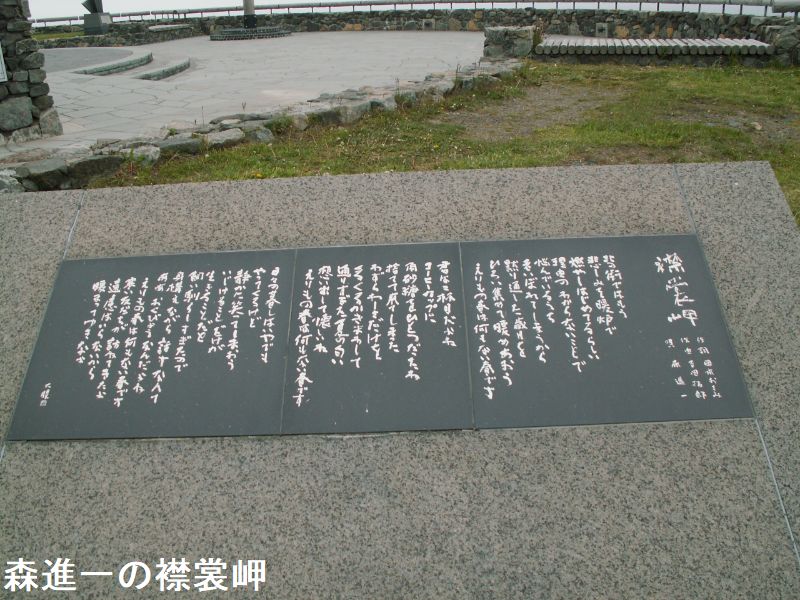 襟裳岬
作詞 岡本おさみ
作曲 吉田拓郎
唄 森進一
北の街ではもう
悲しみを暖炉で
燃やしはじめてるらしい
理由のわからないことで
悩んでいるうち
老いぼれてしまうから
黙り通した歳月を
ひろい集めて暖めあおう
えりもの春は何もない春です
君は二杯目だよね
コーヒーカップに
角砂糖をひとつだったね
捨てて来てしまった
わずらわしさだけを
くるくるかきまわして
通りすぎた夏の匂い
想い出して懐しいね
えりもの春は何もない春です
日々の暮しはいやでも
やってくるけど
静かに笑ってしまおう
いじけることだけが
生きることだと
飼い馴らしすぎたので
身構えながら話すなんて
ああ おくびょうなんだよね
えりもの春は何もない春です
寒い友だちが訪ねてきたよ
遠慮はいらないから
暖まってゆきなよ
森進一の襟裳岬